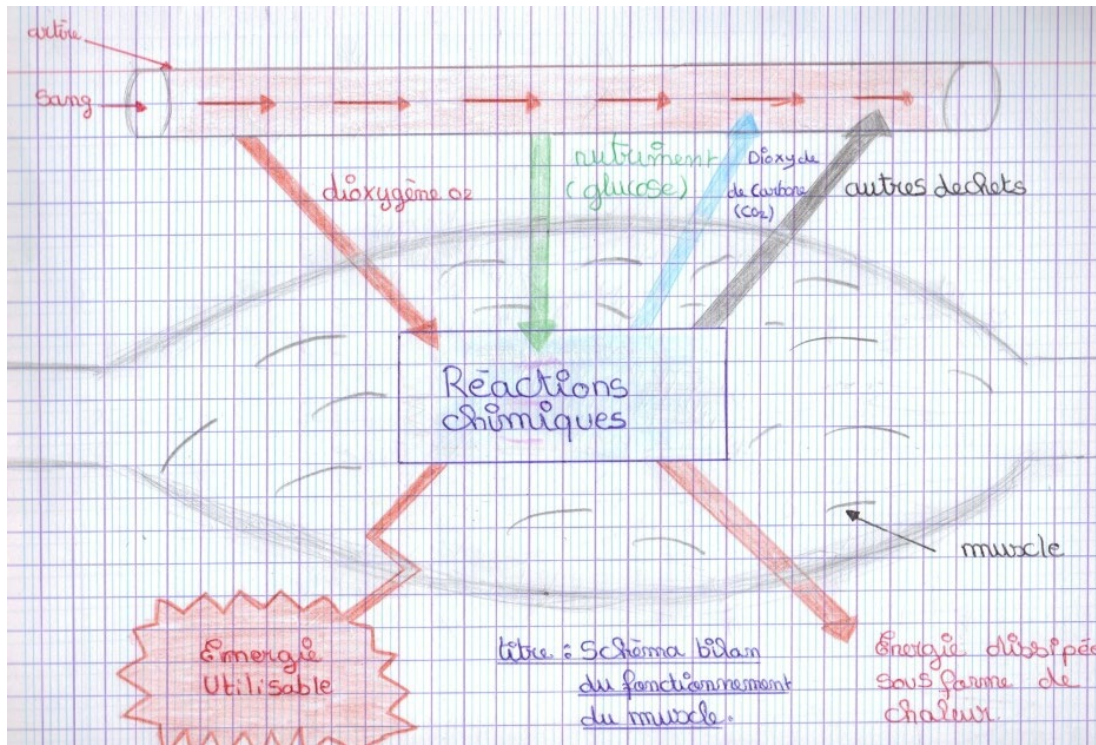 artère
Sang
dioxygène O2
nutriment
(glucose)
Dioxyde
de Carbone
(CO2)
autres dechets
Réactions
chimiques
muscle
Énergie
Utilisable
titre : Schéma bilan
du fonctionnement
du muscle.
Énergie dissipée
sous forme de
chaleur.